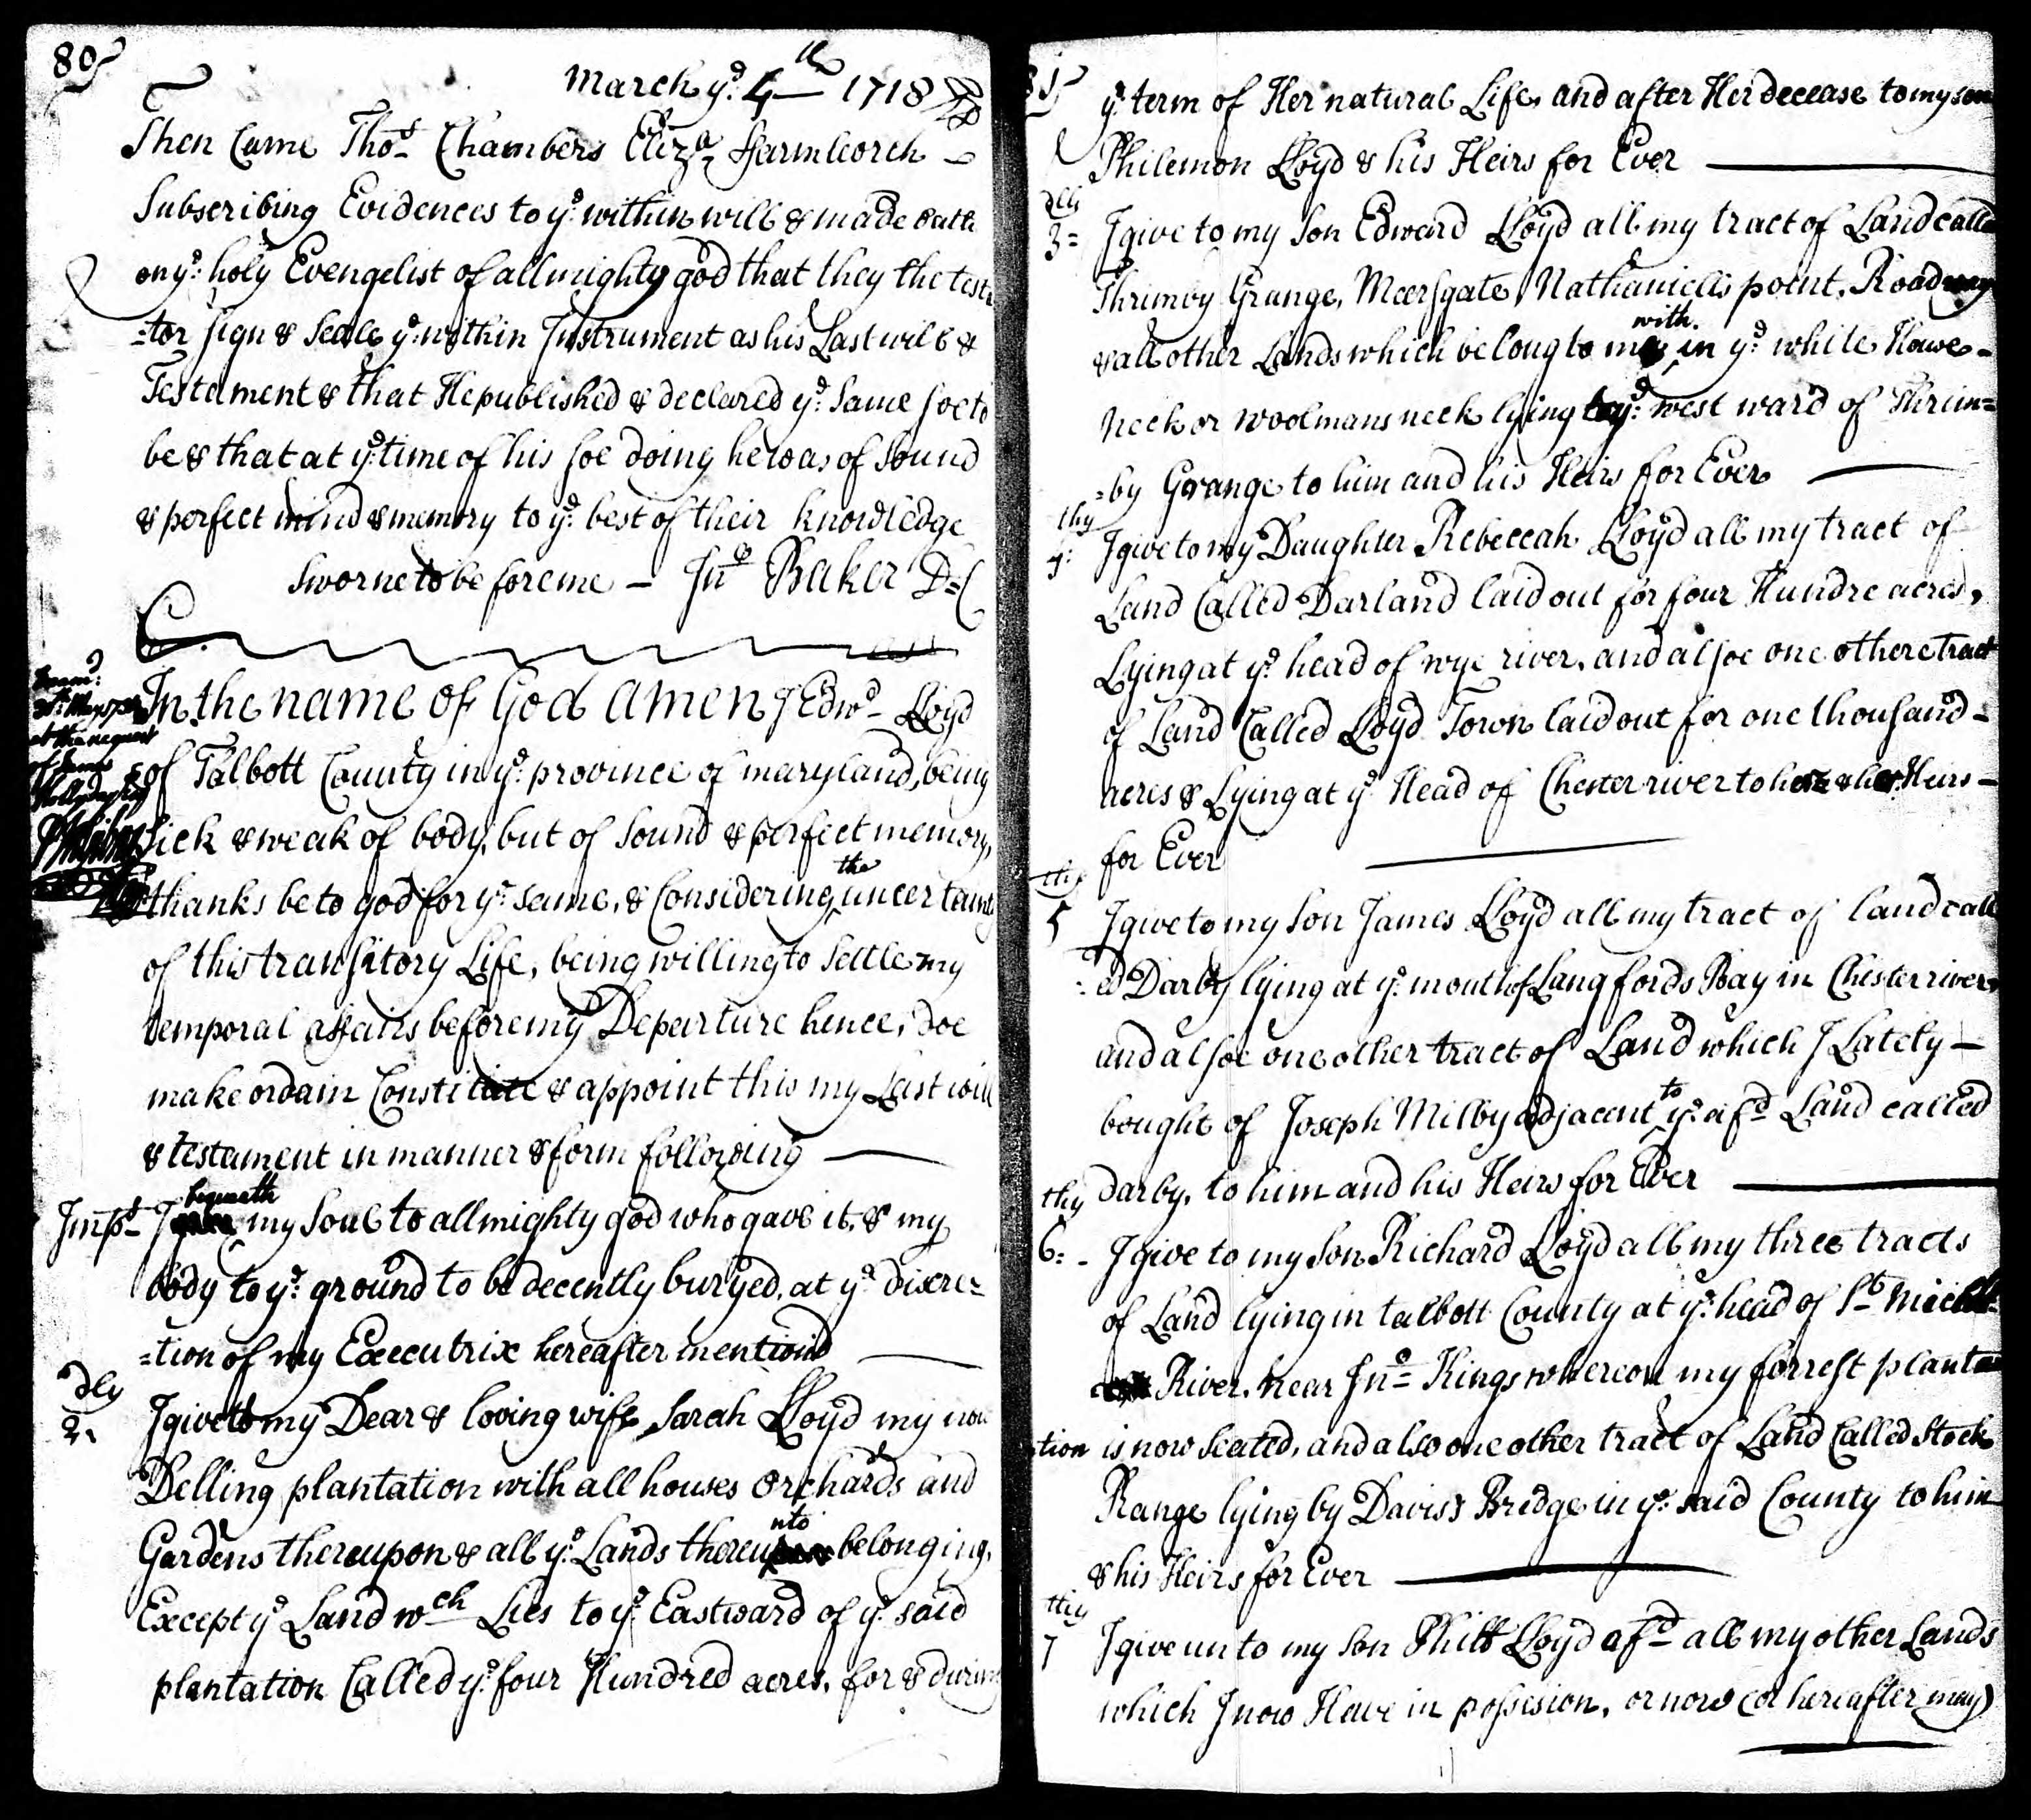 80
March yᵉ 4th 1718
Then Came Thoˢ Chambers Elizᵃ Farmworth
Subscribing Evidences to yᵉ within will & made oath
on yᵉ holy Evengelist of allmighty god that they the testa
-tor sign & Seale yᵉ within Instrument as his Last will &
Testament & that He published & declared yᵉ Same soe to
be & that at yᵉ time of his soe doing he was of Sound
& perfect mind & memory to yᵉ best of their knowledge
Sworne to before me – Jnᵒ Baker D:C
In the name of God Amen I Edwᵈ Lloyd
of Talbott County in yᵉ province of maryland, being
Sick & weak of body, but of Sound & perfect memory,
thanks be to god for yᵉ same, & Considering the uncertainty
of this transitory Life, being willing to Settle my
temporal affairs before my Departure hence, doe
make ordain Constitute & appoint this my Last will
& testament in manner & form following
Impˢ I bequeath my Soul to allmighty god who gave it, & my
body to yᵉ ground to be decently buryed, at yᵉ discre=
=tion of my Executrix hereafter mentiond
2dly I give to my Dear & loving wife Sarah Lloyd my now
Delling plantation with all houses Orchards and
Gardens thereupon & all yᵉ Lands thereunto belonging,
Except yᵉ Land wch Lies to yᵉ Eastward of yᵉ said
plantation Called yᵉ four Hundred acres, for & during
81
yᵉ term of Her natural Life, and after Her decease to my son
Philemon Lloyd & his Heirs for Ever
3dly I give to my Son Edward Lloyd all my tract of Land calld
Thrimby Grange, Meersgate, Nathaniells point, Roadway
& all other Lands which belong to me with in yᵉ white House
neck or woolmans neck lying to yᵉ west ward of Thrim=
=by Grange to him and his Heirs for Ever
4thy I give to my Daughter Rebeccah Lloyd all my tract of
Land Called Darland laid out for four Hundre acres,
Lying at yᵉ head of wye river, and alsoe one othere tract
of Land Called Lloyd Town laid out for one thousand
acres & Lying at yᵉ Head of Chester river to her & her Heirs
for Ever
5thy I give to my Son James Lloyd all my tract of land call
=ed Darby lying at yᵉ mouth of Langfords Bay in Chester river,
and alsoe one other tract of Land which I Lately
bought of Joseph Milby adjacent to yᵉ afᵈ Land called
darby, to him and his Heirs for Ever
6thy I give to my Son Richard Lloyd all my three tracts
of Land lying in talbott County at yᵉ head of Sᵗ Michll
River, near Jnᵒ Kings whereon my forrest planta
tion is now Seated, and also one other tract of Land Called Stock
Range lying by Daviss Bredge in yᵉ said County to him
& his Heirs for Ever
7thy I give unto my Son Phill Lloyd afᵈ all my other Lands
which I now Have in possesion, or now (or hereafter may)